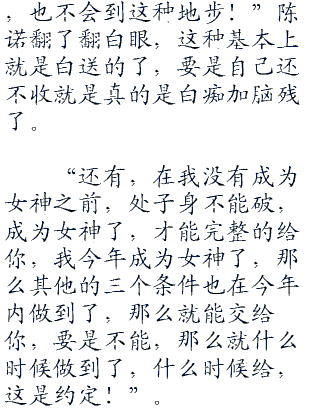 ，也不会到这种地步！”陈
诺翻了翻白眼，这种基本上
就是白送的了，要是自己还
不收就是真的是白痴加脑残
了。
“还有，在我没有成为
女神之前，处子身不能破，
成为女神了，才能完整的给
你，我今年成为女神了，那
么其他的三个条件也在今年
内做到了，那么就能交给
你，要是不能，那么就什么
时候做到了，什么时候给，
这是约定！”。